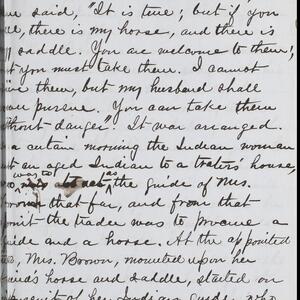 said, "It is true; but if you
there is my horse, and there is
saddle. You are welcome to them;
you must take them. I cannot
them, but my husband shall
pursue. You can take them
without danger". It was arranged.
a certain morning the Indian woman
an aged Indian to a traters' house,
was to as the guide of Mrs.
that far, and from that
the trader was to procure a
guide and a horse. At the appointed
Mrs. Brown, mounted upon her
horse and saddle, started on
her Indian guide, who